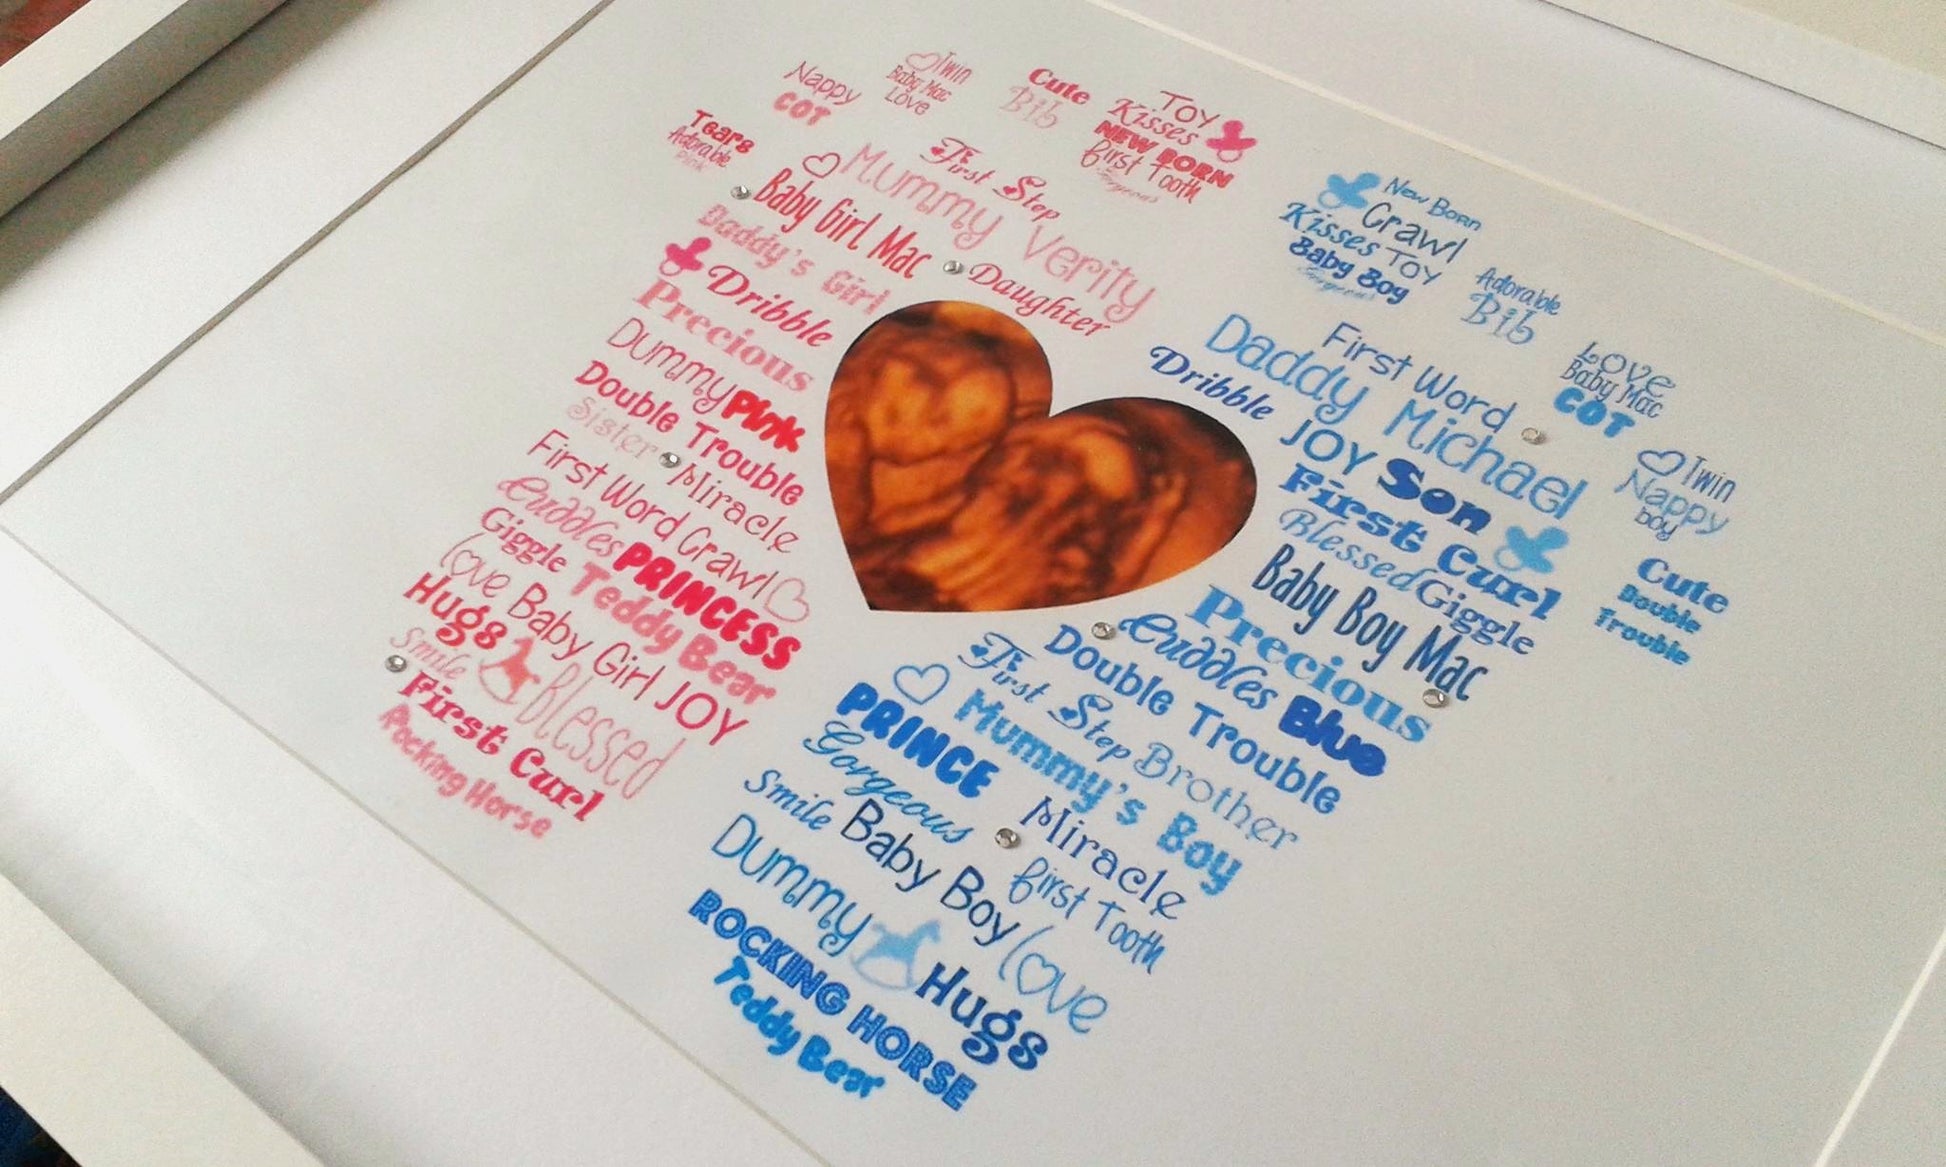 Nappy
COT
Twin
Baby Mac
Love
Cute
Bib
TOY
Kisses
NEW BORN
first Tooth
Gorgeous
Tears
Adorable
Pink
First Step
Mummy Verity
Baby Girl Mac
Daughter
Daddy's Girl
Dribble
Precious
Dummy Pink
Double Trouble
Sister Miracle
First Word Crawl
Cuddles PRINCESS
Giggle Teddy Bear
love Baby Girl JOY
Hugs
Smile Blessed
First Curl
Rocking Horse
New Born
Crawl
Kisses TOY
Baby Boy
Gorgeous
Adorable
Bib
LOVE
Baby Mac
COT
Twin
Nappy
boy
Cute
Double
Trouble
First Word
Daddy Michael
Dribble
JOY Son
First Curl
Blessed Giggle
Baby Boy Mac
Precious
Cuddles Blue
Double Trouble
First Step Brother
Mummy's Boy
PRINCE
Gorgeous Miracle
Smile Baby Boy first Tooth
Dummy love
Hugs
ROCKING HORSE
Teddy Bear